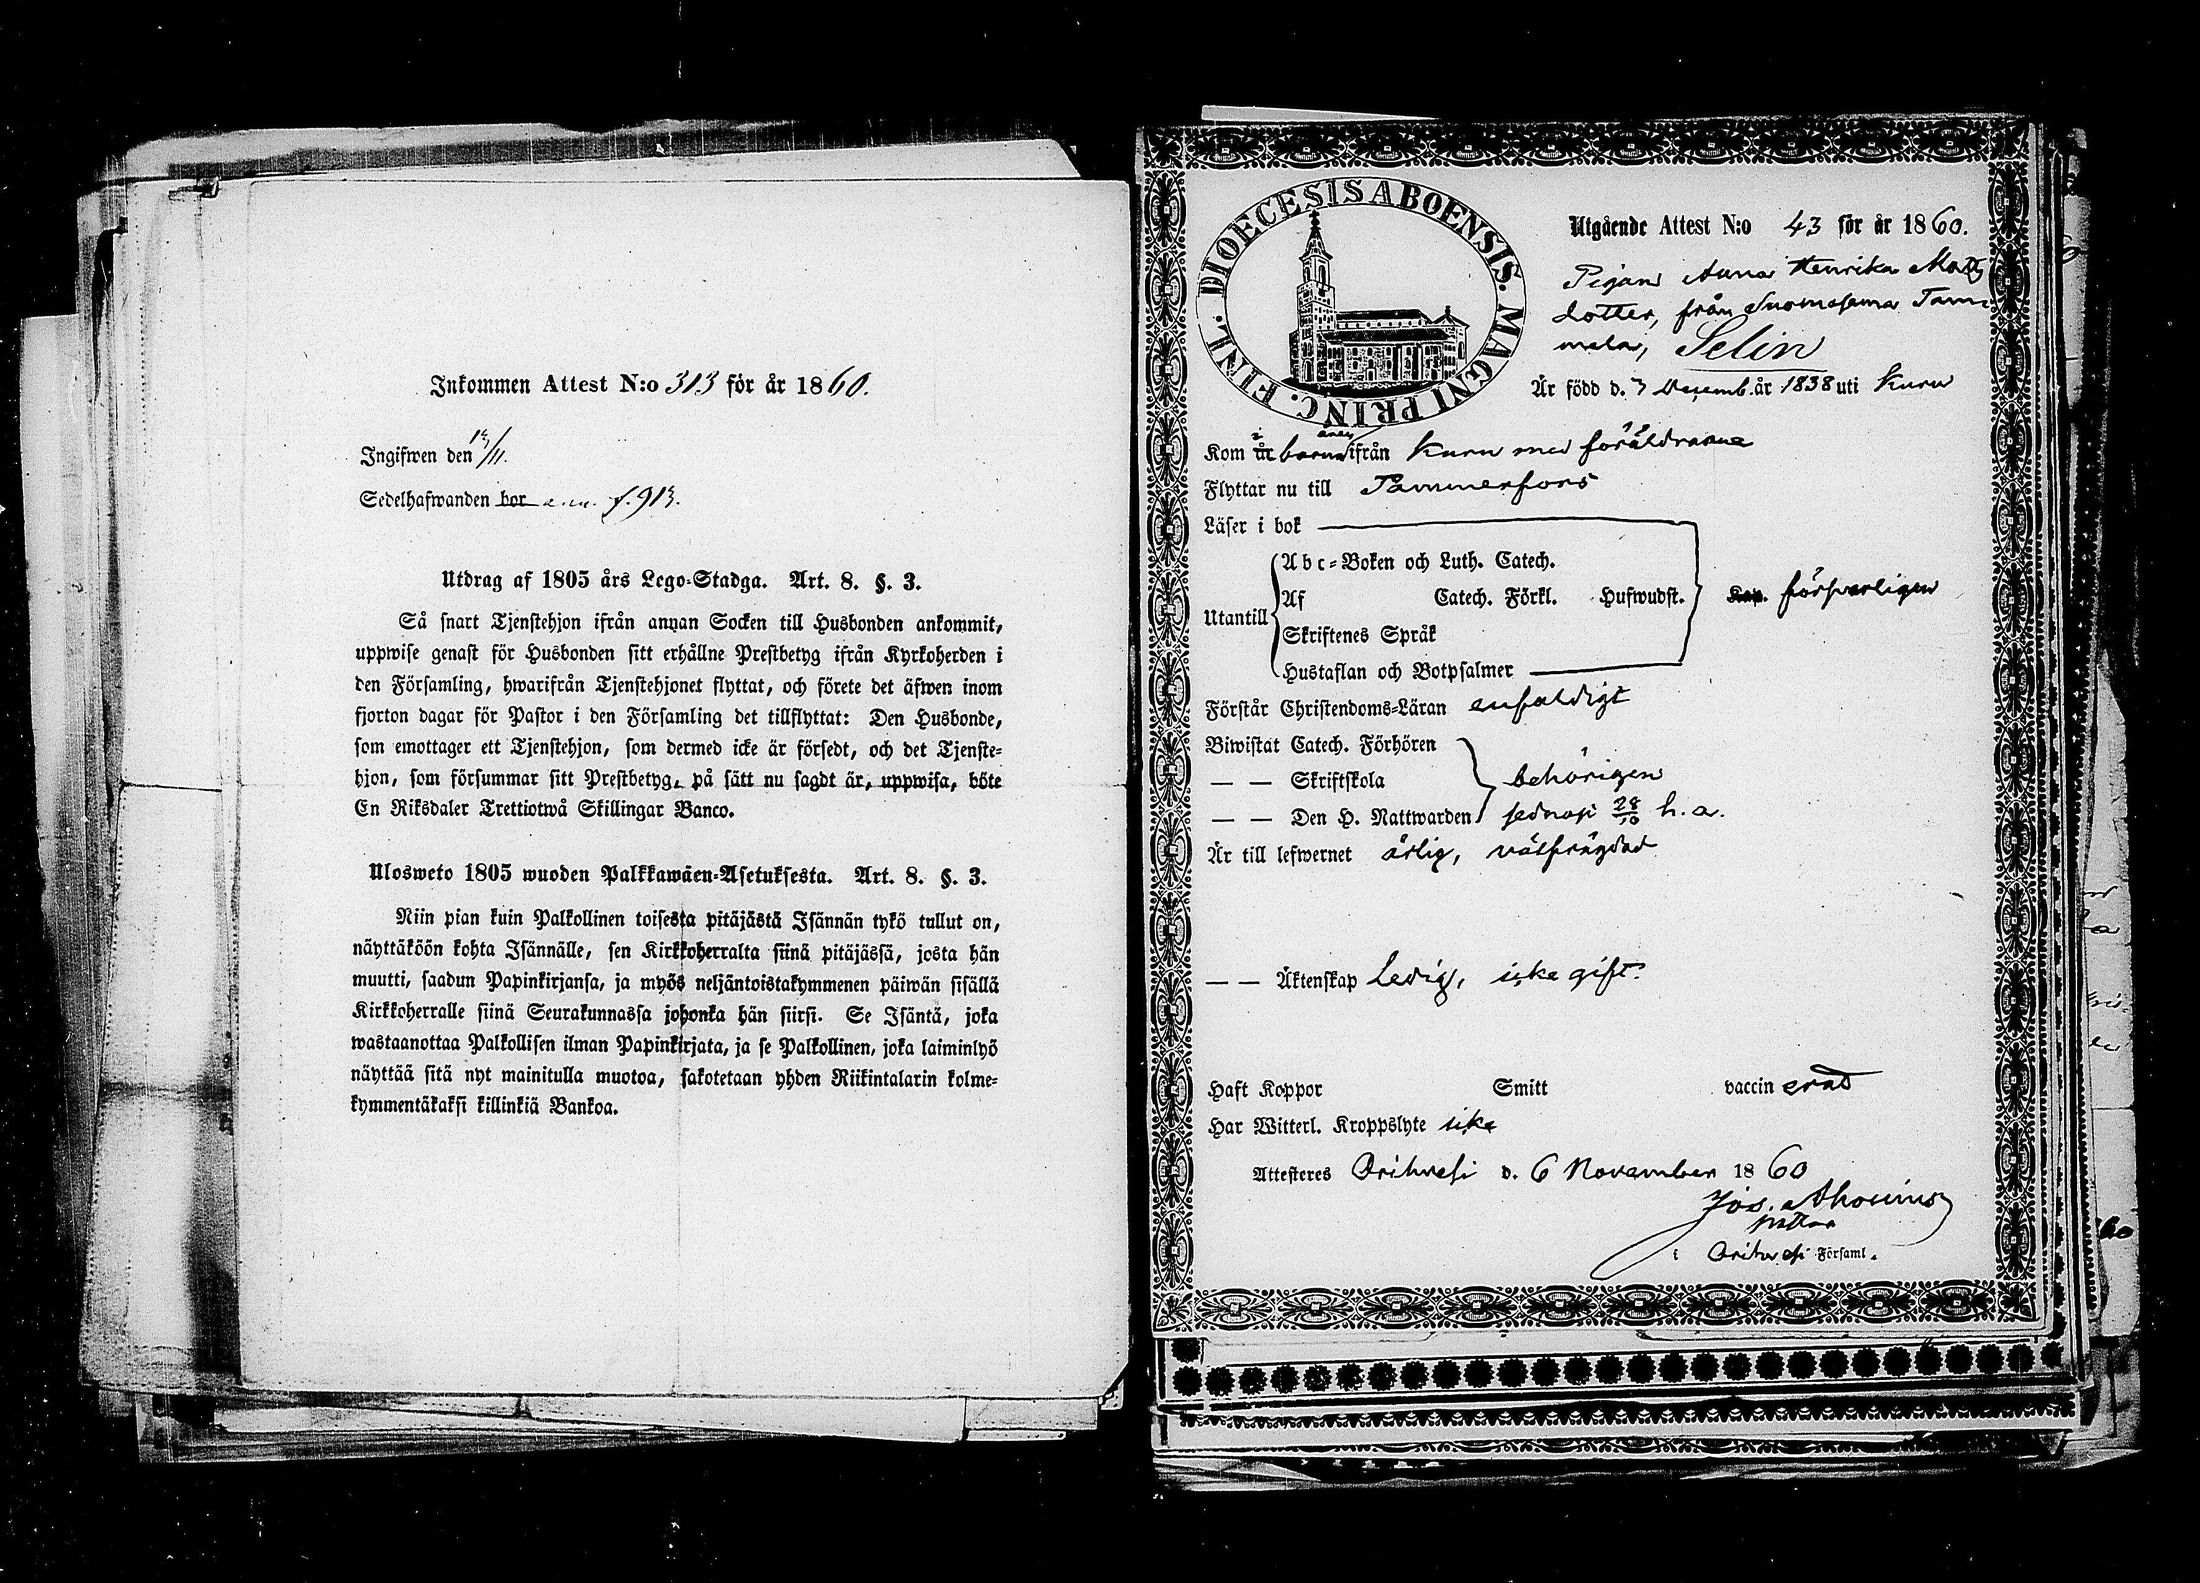 Inkommen Attest N:o 313 för år 1860.
Ingifwen den 13/11.
Sedelhafwanden bor a.m. f. 913.
Utdrag af 1805 års Lego-Stadga. Art. 8. §. 3.
Så snart Tjenstehjon ifrån annan Socken till Husbonden ankommit,
uppwise genast för Husbonden sitt erhållne Prestbetyg ifrån Kyrkoherden i
den Församling, hwarifrån Tjenstehjonet flyttat, och förete det äfwen inom
fjorton dagar för Pastor i den Församling det tillflyttat: Den Husbonde,
som emottager ett Tjenstehjon, som dermed icke är försedt, och det Tjenste-
hjon, som försummar sitt Prestbetyg, på sätt nu sagdt är, uppwisa, böte
En Riksdaler Trettiotwå Skillingar Banco.
Ulosweto 1805 wuoden Palkkawäen-Asetuksesta. Art. 8. §. 3.
Niin pian kuin Palkollinen toisesta pitäjästä Isännän tykö tullut on,
näyttäköön kohta Isännälle, sen Kirkkoherralta siinä pitäjässä, josta hän
muutti, saadun Papinkirjansa, ja myös neljäntoistakymmenen päiwän sisällä
Kirkkoherralle siinä Seurakunnassa johonka hän siirsi. Se Isäntä, joka
wastaanottaa Palkollisen ilman Papinkirjata, ja se Palkollinen, joka laiminlyö
näyttää sitä nyt mainitulla muotoa, sakotetaan yhden Riikintalarin kolme-
kymmentäkaksi killinkiä Bankoa.
DIOECESIS ABOENSIS. MAGNI PRINC. FINL.
Utgående Attest N:o 43 för år 1860.
Pigan Anna Henrika Matts
dotter, från Suomasema Tam-
mela, Selin
Är född d. 7 Decemb. år 1838 uti Kuru
Kom år i barnaåren ifrån Kuru med föräldrarne
Flyttar nu till Tammerfors
Läser i bok
Abc-Boken och Luth. Catech.
Utantill Af Catech. Förkl. Hufwudst. försvarligen
Skriftenes Språk
Hustaflan och Botpsalmer
Förstår Christendoms-Läran enfaldigt
Biwistat Catech. Förhören
— — Skriftskola behörigen
— — Den H. Nattwarden sednast 28/10 h. a.
Är till lefwernet ärlig, välfrägdad
— — Äktenskap Ledig, icke gift.
Haft Koppor Smitt vaccin erad
Har Witterl. Kroppslyte icke
Attesteres Orihvesi d. 6 November 1860
Jos. Ahonius
pastor
i Orihvesi Församl.